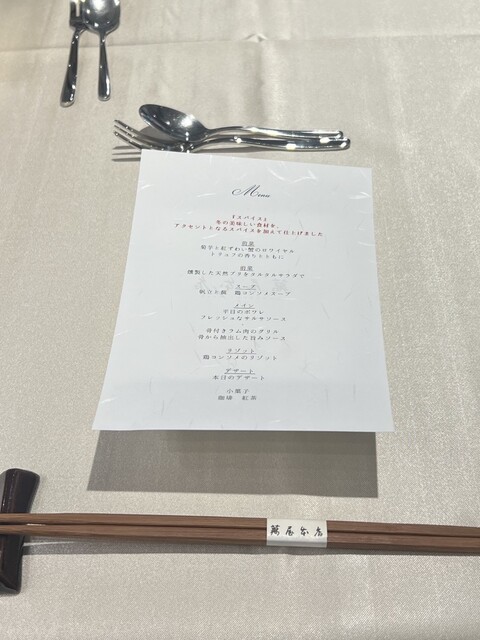 Menu
『スパイス』
冬の美味しい食材を、
アクセントとなるスパイスを加えて仕上げました
前菜
菊芋と紅ずわい蟹のロワイヤル
トリュフの香りとともに
前菜
燻製した天然ブリをタルタルサラダで
スープ
帆立と蕪 鶏コンソメスープ
メイン
平目のポワレ
フレッシュなサルサソース
骨付きラム肉のグリル
骨から抽出した旨みソース
リゾット
鶏コンソメのリゾット
デザート
本日のデザート
小菓子
珈琲 紅茶
萬屋本店